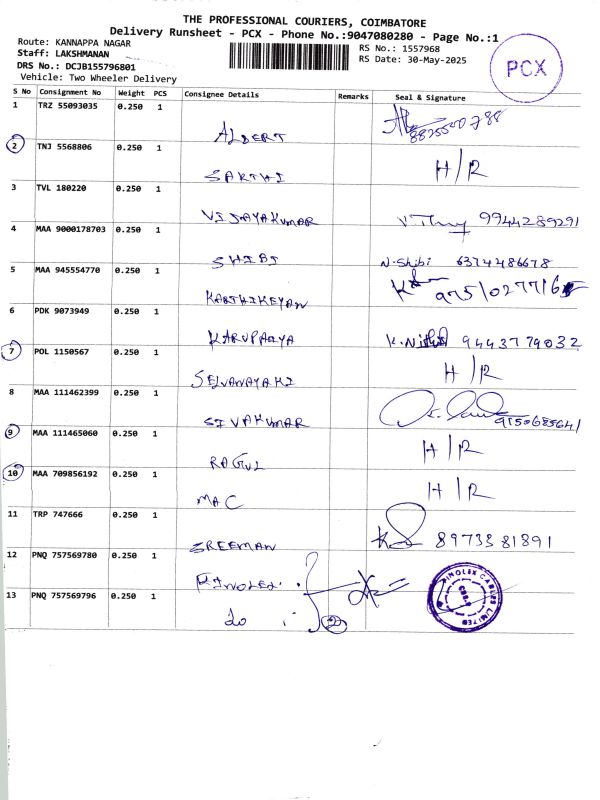 THE PROFESSIONAL COURIERS, COIMBATORE
Delivery Runsheet - PCX - Phone No.:9047080280 - Page No.:1
Route: KANNAPPA NAGAR
RS No.: 1557968
Staff: LAKSHMANAN
RS Date: 30-May-2025
DRS No.: DCJB155796801
Vehicle: Two Wheeler Delivery
PCX
S No Consignment No Weight PCS Consignee Details Remarks Seal & Signature
1 TRZ 55093035 0.250 1 ALBERT
2 TNJ 5568806 0.250 1 SAKTHI H/R
3 TVL 180220 0.250 1 VIJAYAKUMAR 9944289291
4 MAA 9000178703 0.250 1 SHIBI N.Shibi 6374486678
5 MAA 945554770 0.250 1 KARTHIKEYAN
6 PDK 9073949 0.250 1 KARUPAIYA 9443779032
7 POL 1150567 0.250 1 SELVANAYAKI H/R
8 MAA 111462399 0.250 1 SIVAKUMAR 9150685641
9 MAA 111465060 0.250 1 RAGUL H/R
10 MAA 709856192 0.250 1 MAC H/R
11 TRP 747666 0.250 1 SREEMAN 8973381891
12 PNQ 757569780 0.250 1
13 PNQ 757569796 0.250 1 do
FINOLEX CABLES LIMITED